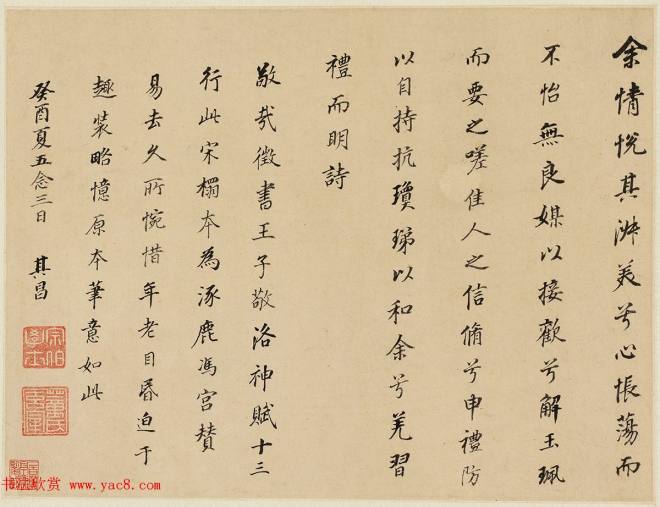 余情悅其淑美兮心悵蕩而
不怡無良媒以接歡兮解玉珮
而要之嗟佳人之信脩兮申禮防
以自持抗瓊珶以和余兮羌習
禮而明詩
敬哉徵書王子敬洛神賦十三
行此宋榻本為涿鹿馮宮贊
易去久所惋惜年老目昏迫于
趣裝略憶原本筆意如此
癸酉夏五念三日 其昌
宗伯學士
董氏玄宰
书法欣赏 www.yac8.com